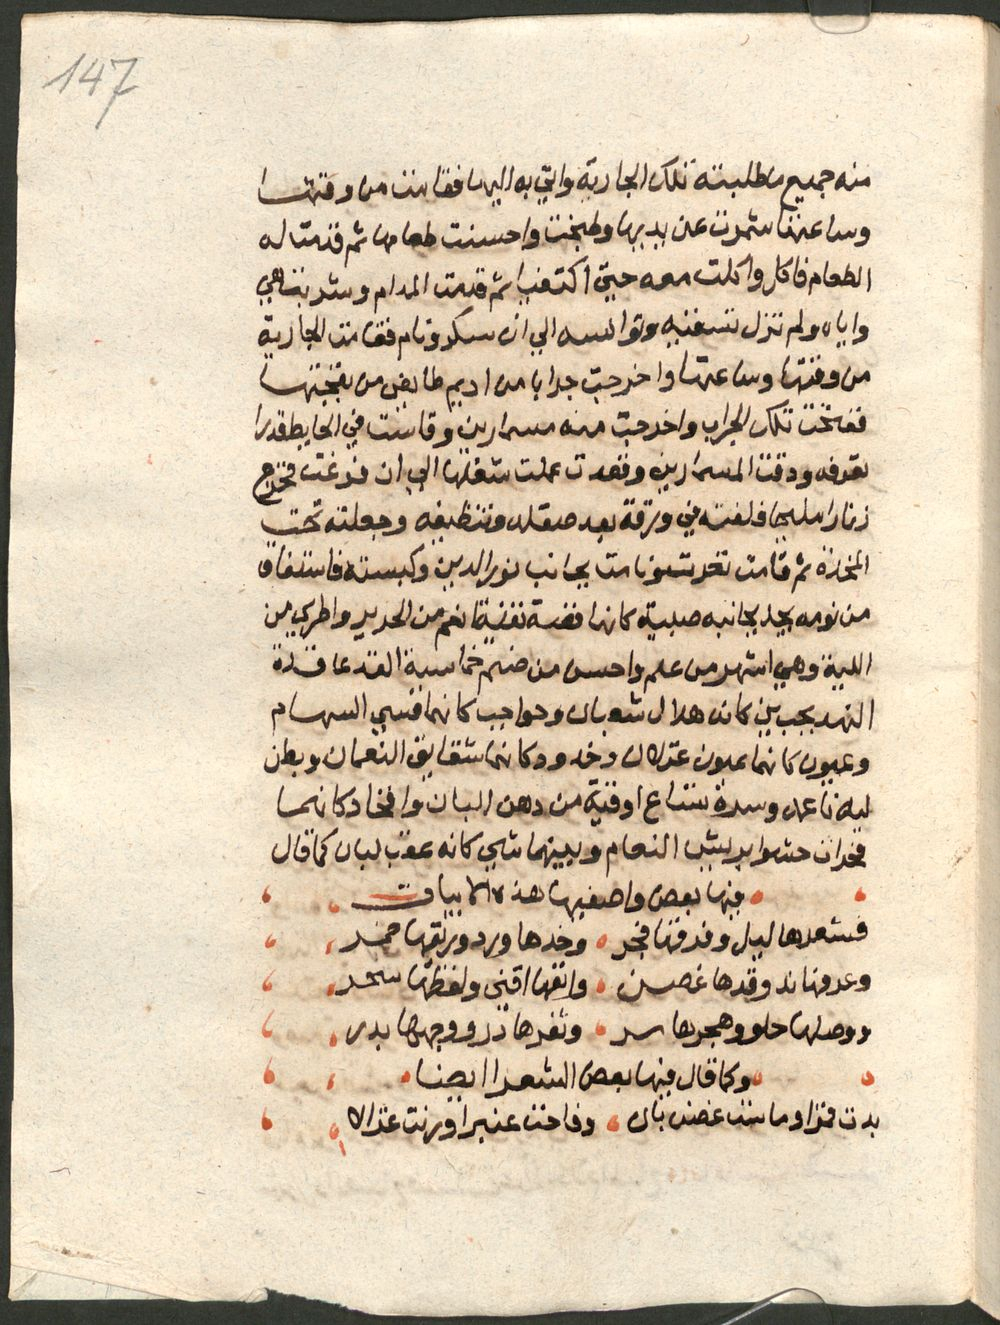 147
منه جميع ما طلبته تلك الجارية واتي به اليها فقامت من وقتها
وساعتها شمرت عن يديها وطبخت واحسنت طعامها ثم قدمت له
الطعام فاكل واكلت معه حتي اكتفيا ثم قدمت المدام وشربت هي
واياه ولم تزل تسقيه وتوانسه الي ان سكر ونام فقامت الجارية
من وقتها وساعتها واخرجت جرابا من اديم طايفي من بقجتها
ففتحت تلك الجراب واخرجت منه مسمارين وقاست في الحايط قدرا
تعرفه ودقت المسمارين وقعدت عملت شغلها الي ان فرغت فخرج
زنارا مليحا فلفته في ورقة بعد صقله وتنظيفه وجعلته تحت
المخدة ثم قامت تعرت ونامت بجانب نور الدين وكبسته فاستفاق
من نومه يجد بجانبه صبية كانها فضة نقية انعم من الحرير واطري من
اللية وهي اشهر من علم واحسن من صنم خماسية القد قاعدة
النهد بجبين كانه هلال شعبان وحواجب كانهما قسي السهام
وعيون كانهما عيون غزلان وخدود كانهما شقايق النعمان وبطن
ليه ناعمه وسرة تساع اوقية من دهن البان وافخاد كانهما
مخدات حشوا بريش النعام وبينهما شي كانه كما قال
فيها بعض واصفيها هذه الابيات
فشعرها ليل وفرقها فجر وخدها ورد وريقها خمر
وعرفها ند وقدها غصن وانفها اقني ولفظها سحر
ووصلها حلو وهجرها مر وثغرها در ووجهها بدر
وكما قال فيها بعض الشعرا ايضا
بدت قمرا وماست غصن بان وفاحت عنبرا ورنت غزالا